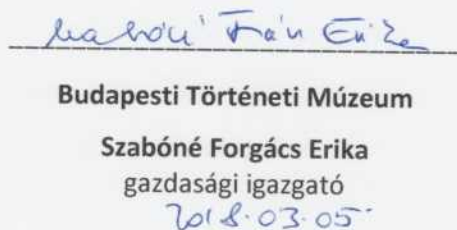 Erika
Budapesti Történeti Múzeum
Szabóné Forgács Erika
gazdasági igazgató
2018.03.05.